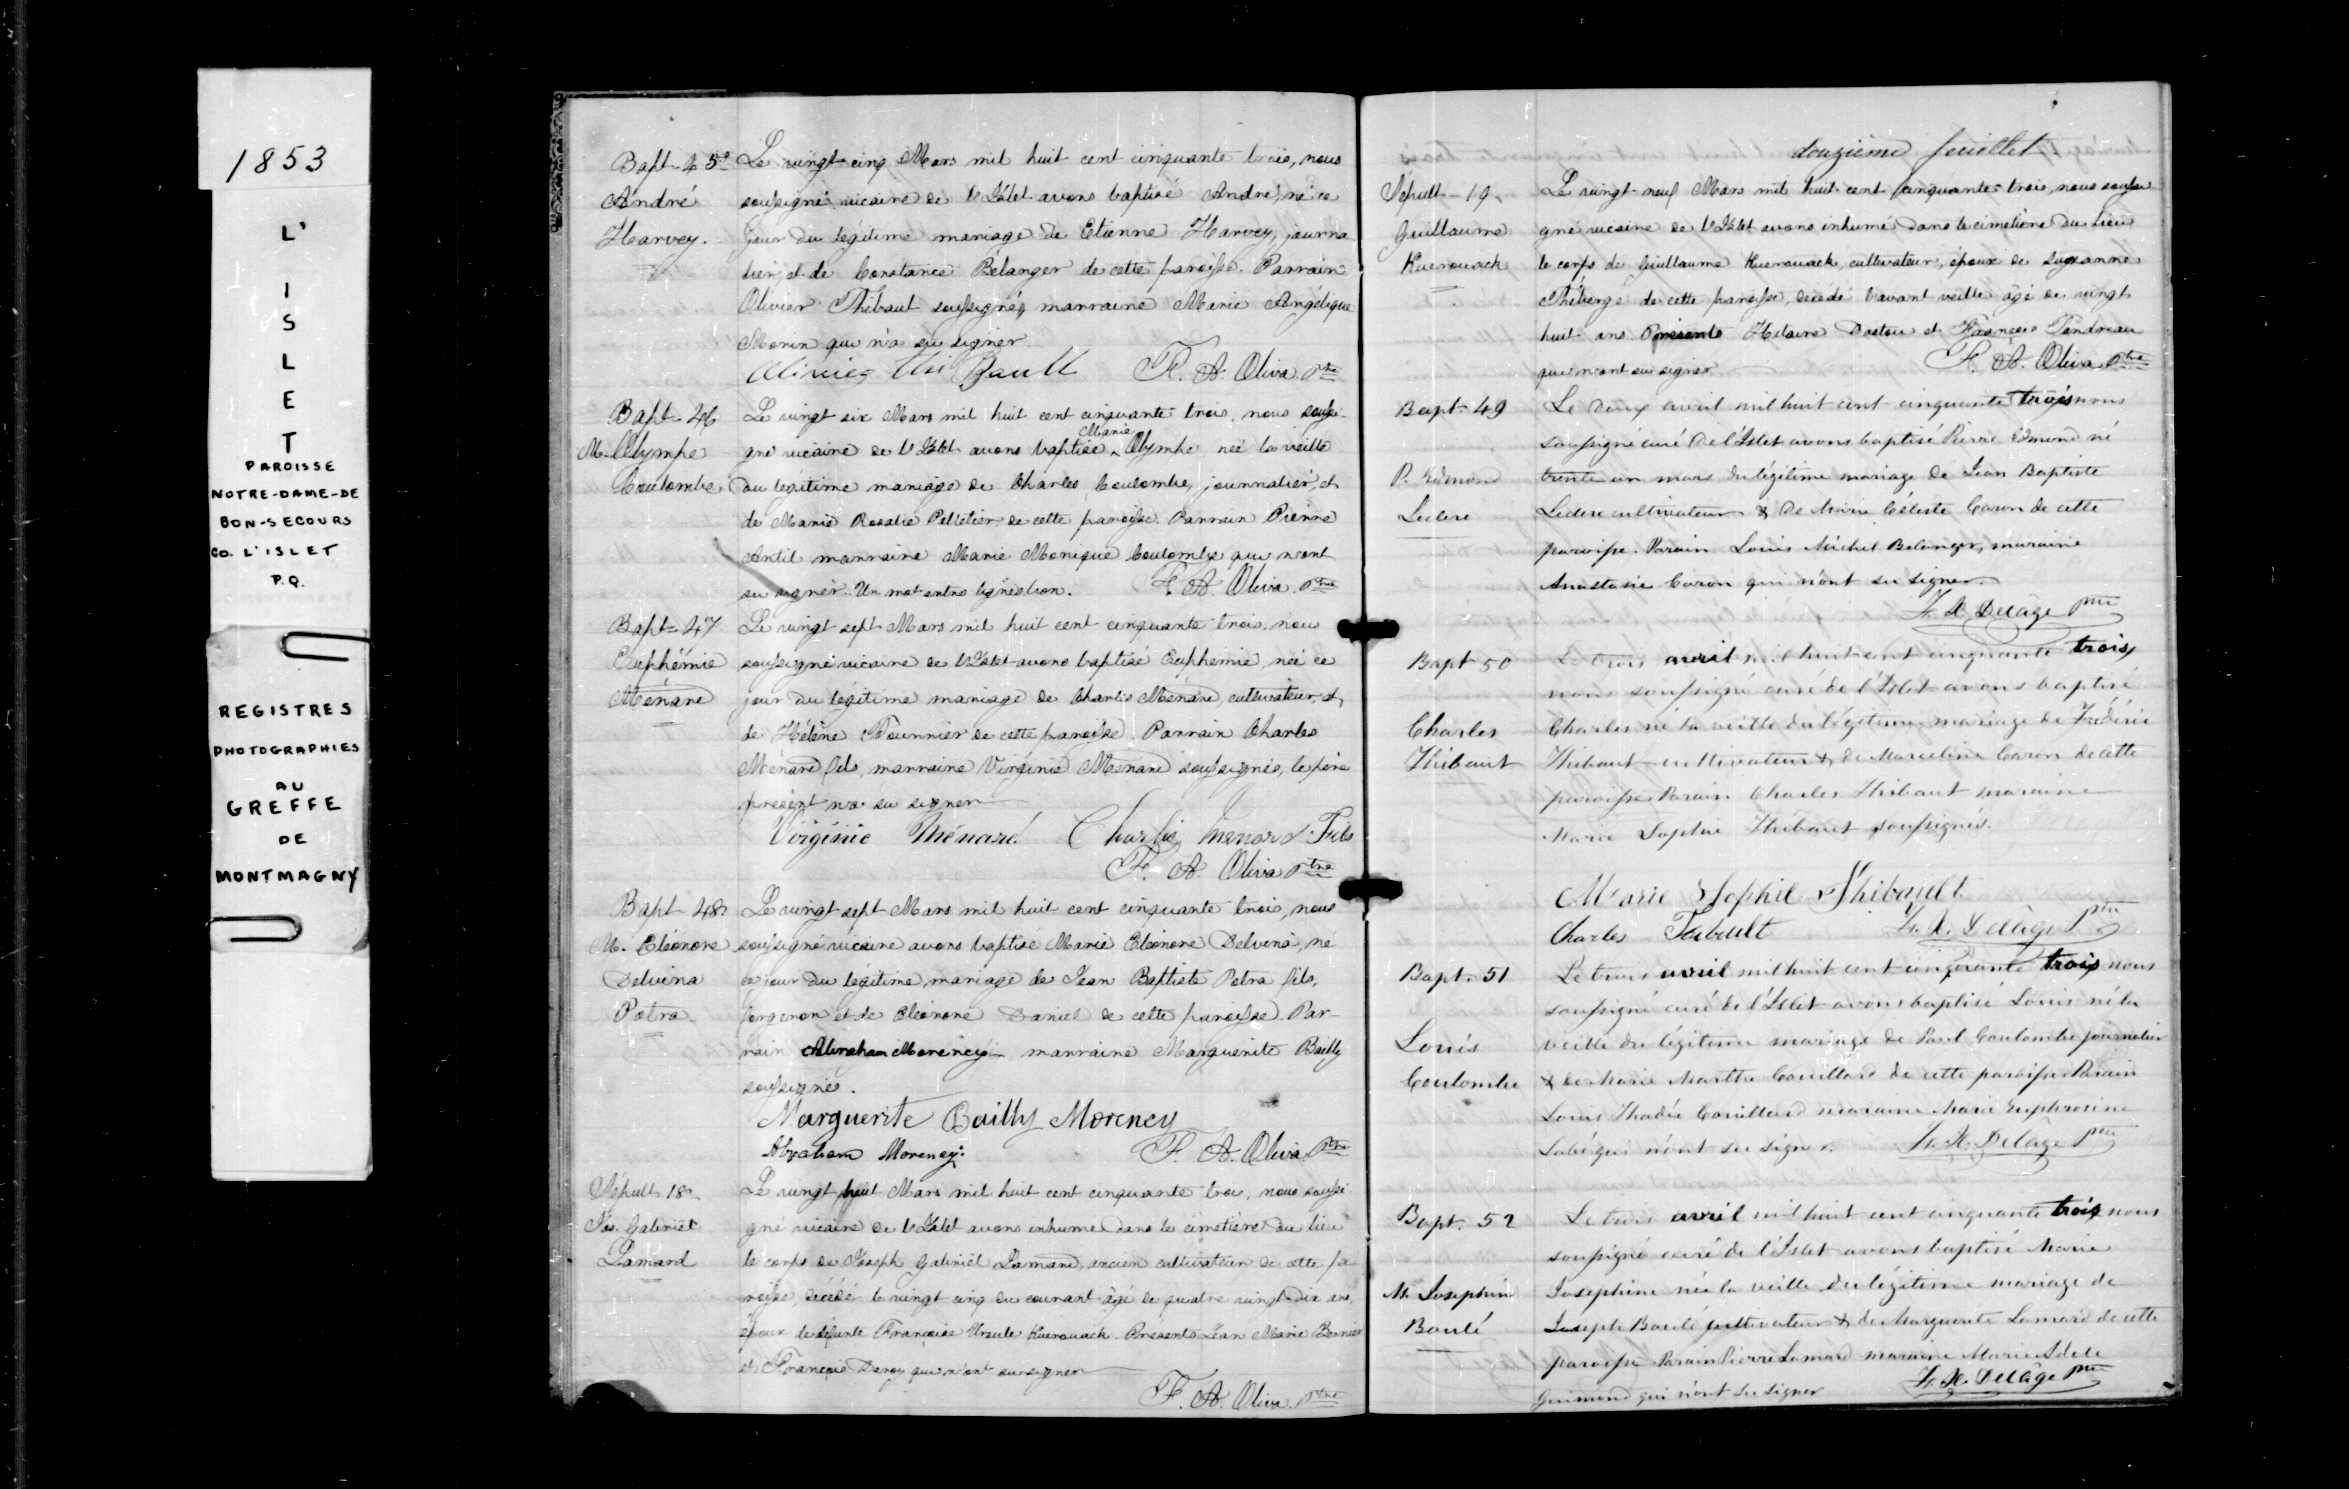 1853
L'
I
S
L
E
T
PAROISSE
NOTRE-DAME-DE
BON-SECOURS
CO. L'ISLET
P.Q.
REGISTRES
PHOTOGRAPHIES
AU
GREFFE
DE
MONTMAGNY
Bapt. 45e
André
Harvey.
Le vingt-cinq Mars mil huit cent cinquante trois, nous
soussigné vicaire de l'Islet avons baptisé André, né ce
jour du légitime mariage de Etienne Harvey, journa
lier, et de Constance Bélanger de cette paroisse. Parrain
Olivier Thibault soussigné, marraine Marie Angélique
Morin qui n'a su signer
Olivier Thi Bault F. A. Oliva Ptre
Bapt. 46
M. Olympe
Coulombe
Le vingt six Mars mil huit cent cinquante trois, nous soussi-
Marie
gné vicaire de l'Islet avons baptisé ^ Olympe née la veille
du légitime mariage de Charles Coulombe, journalier, et
de Marie Rosalie Pelletier de cette paroisse. Parrain Pierre
Antil marraine Marie Monique Coulombe qui n'ont
su signer. Un mot entre lignes bon. F. A. Oliva Ptre
Bapt. 47
Euphémie
Ménard
Le vingt sept Mars mil huit cent cinquante trois, nous
soussigné vicaire de l'Islet avons baptisé Euphemie, née ce
jour du légitime mariage de Charles Ménard, cultivateur, et
de Hélène Fournier de cette paroisse. Parrain Charles
Ménard fils, marraine Virginie Ménard soussignés, le père
présent n'a su signer
Virginie Ménard Charles Menard Fils
F. A. Oliva Ptre
Bapt. 48
M. Eléonore
Delvina
Potra
Le vingt sept Mars mil huit cent cinquante trois, nous
soussigné vicaire avons baptisé Marie Eléonore Delvina, né
ce jour du légitime mariage de Jean Baptiste Potra fils,
forgeron et de Eléonore Daniel de cette paroisse. Par-
rain Abraham Morency marraine Marguerite Bailly
soussignés.
Marguerite Bailly Morency
Abraham Morency. F. A. Oliva Ptre
Sépult. 18
Jos. Gabriel
Lamard
Le vingt huit Mars mil huit cent cinquante trois, nous soussi
gné vicaire de l'Islet avons inhumé dans le cimetière du lieu
le corps de Joseph Gabriel Lamard, ancien cultivateur de cette pa
roisse, décédé le vingt cinq du courant âgé de quatre vingt-dix ans,
époux de défunte Françoise Ursule Kuerouack. Présents Jean Marie Bernier
et François qui n'ont su signer
F. A. Oliva Ptre
douzième feuillet
Sépult. 19
Guillaume
Kuerouack
Le vingt-neuf Mars mil huit-cent cinquante-trois, nous soussi
gné vicaire de l'Islet avons inhumé dans le cimetière du lieu
le corps de Guillaume Kuerouack, cultivateur, époux de Suzanne
Théberge de cette paroisse, décédé l'avant veille âgé de vingt
huit ans Présents Hilaire et François
qui n'ont su signer F. A. Oliva Ptre
Bapt. 49
P. Edmond
Leclerc
Le deux avril mil huit cent cinquante trois nous
soussigné curé de l'Islet avons baptisé Pierre Edmond né
trente un mars du légitime mariage de Jean Baptiste
Leclerc cultivateur & de Marie Céleste Caron de cette
paroisse. Parain Louis Michel Belanger, maraine
Anastasie Caron qui n'ont su signer
F. X. Delâge Ptre
Bapt. 50
Charles
Thibaut
Le trois avril mil huit cent cinquante trois,
nous soussigné curé de l'Islet avons baptisé
Charles né la veille du légitime mariage de Frédéric
Thibaut cultivateur & de Marceline Caron de cette
paroisse Parain Charles Thibaut maraine
Marie Sophie Thibaut soussignés.
Marie Sophie Thibault
Charles Tibault F. X. Delâge Ptre
Bapt. 51
Louis
Coulombe
Le trois avril mil huit cent cinquante trois nous
soussigné curé de l'Islet avons baptisé Louis né la
veille du légitime mariage de Paul Coulombe journalier
& de Marie Marthe Couillard de cette paroisse Parain
Louis Thadée Couillard maraine Marie Euphrosine
qui n'ont su signer. F. X. Delâge Ptre
Bapt. 52
M. Joséphine
Boulé
Le trois avril mil huit cent cinquante trois nous
soussigné curé de l'Islet avons baptisé Marie
Josephine née la veille du légitime mariage de
Joseph Boulé cultivateur & de Marguerite Lamard de cette
paroisse Parain Pierre Lamard maraine Marie Adele
Guimond qui n'ont su signer F. X. Delâge Ptre